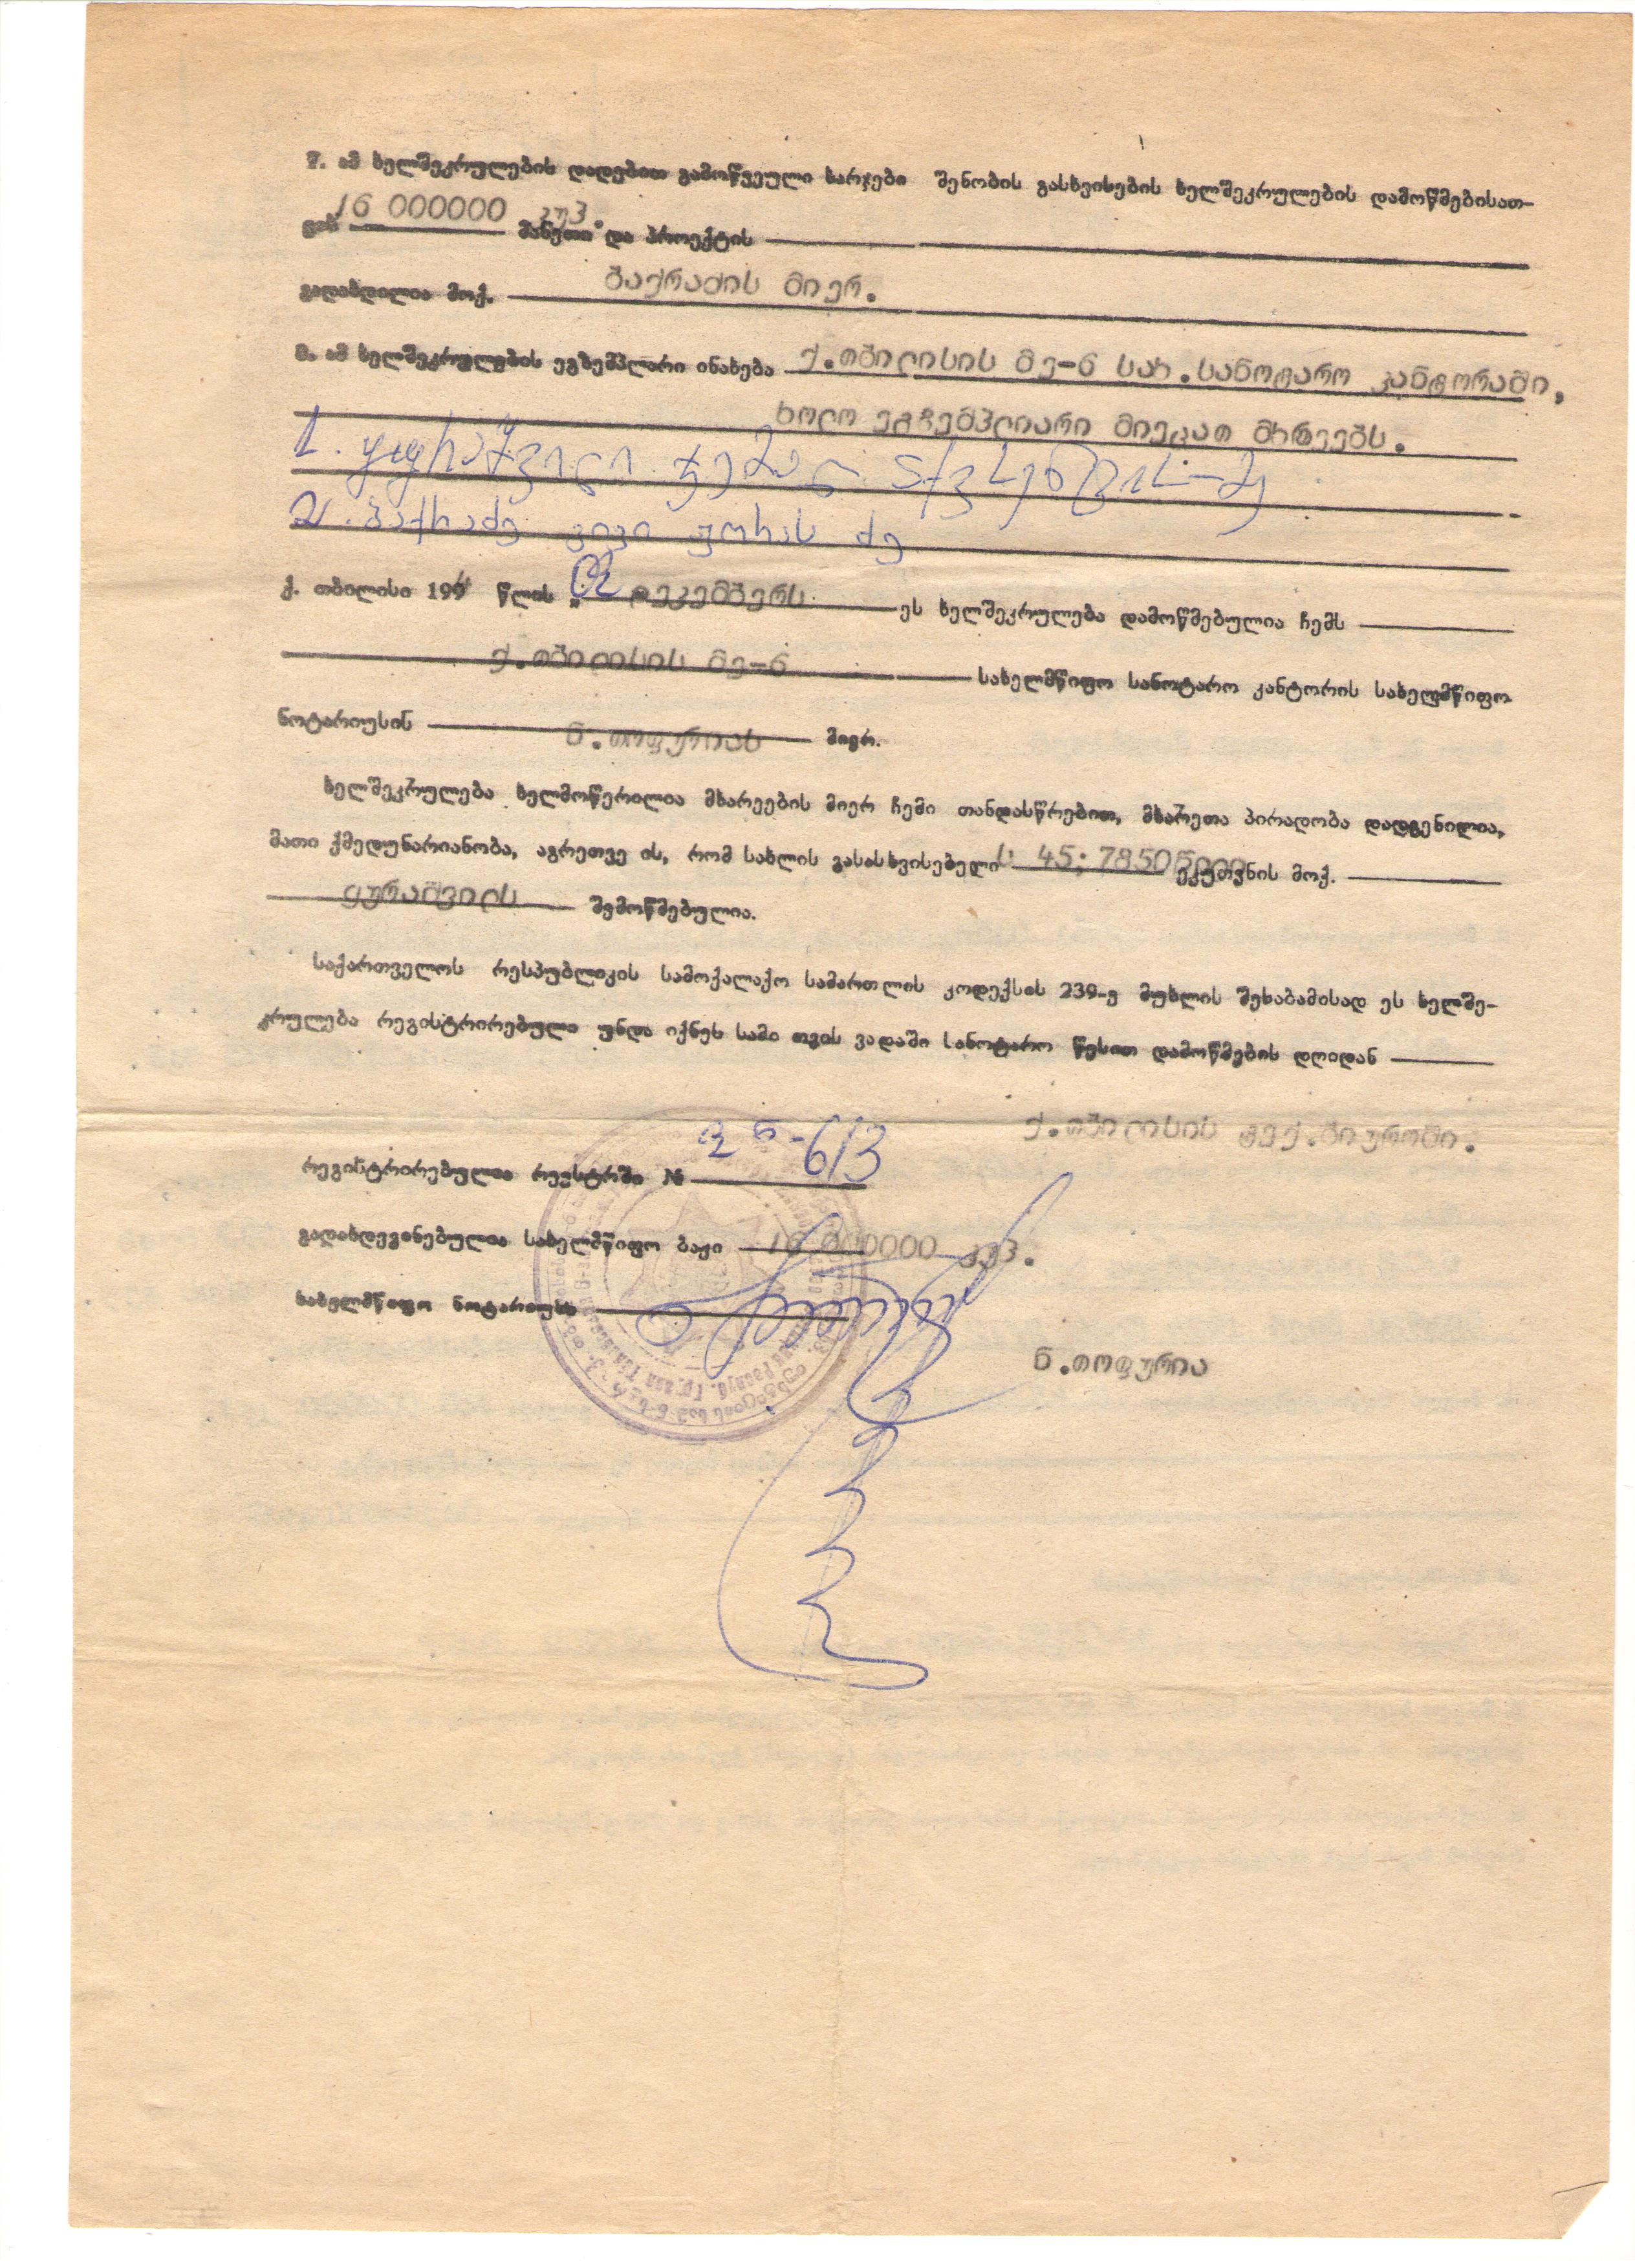 7. ამ ხელშეკრულების დადებით გამოწვეული ხარჯები შენობის გასხვისების ხელშეკრულების დამოწმებისათ-
ვის 16 000000 კუპ. მანეთი და პროექტის
გადახდილია მოქ. ბაქრაძის მიერ.
8. ამ ხელშეკრულების ეგზემპლარი ინახება ქ.თბილისის მე-6 სახ.სანოტარო კანტორაში,
ხოლო ეგზემპლიარი მიეცათ მხრეებს.
1. ჯემალ
2. ბაქრაძე გივი ჟორას ძე
ქ. თბილისი 1994 წლის " დეკემბერს ეს ხელშეკრულება დამოწმებულია ჩემს
ქ.თბილისის მე-6 სახელმწიფო სანოტარო კანტორის სახელმწიფო
ნოტარიუსის ნ.თოფურიას მიერ.
ხელშეკრულება ხელმოწერილია მხარეების მიერ ჩემი თანდასწრებით, მხარეთა პირადობა დადგენილია,
მათი ქმედუნარიანობა, აგრეთვე ის, რომ სახლის გასასხვისებელი ეკუთვნის მოქ.
შემოწმებულია.
საქართველოს რესპუბლიკის სამოქალაქო სამართლის კოდექსის 239-ე მუხლის შესაბამისად ეს ხელშე-
კრულება რეგისტრირებული უნდა იქნეს სამი თვის ვადაში სანოტარო წესით დამოწმების დღიდან
ქ.თბილისის ტექ.ბიუროში.
რეგისტრირებულია რეესტრში № 2ნ-613
გადახდევინებულია სახელმწიფო ბაჟი 16 000000 კუპ.
სახელმწიფო ნოტარიუსი
ნ.თოფურია